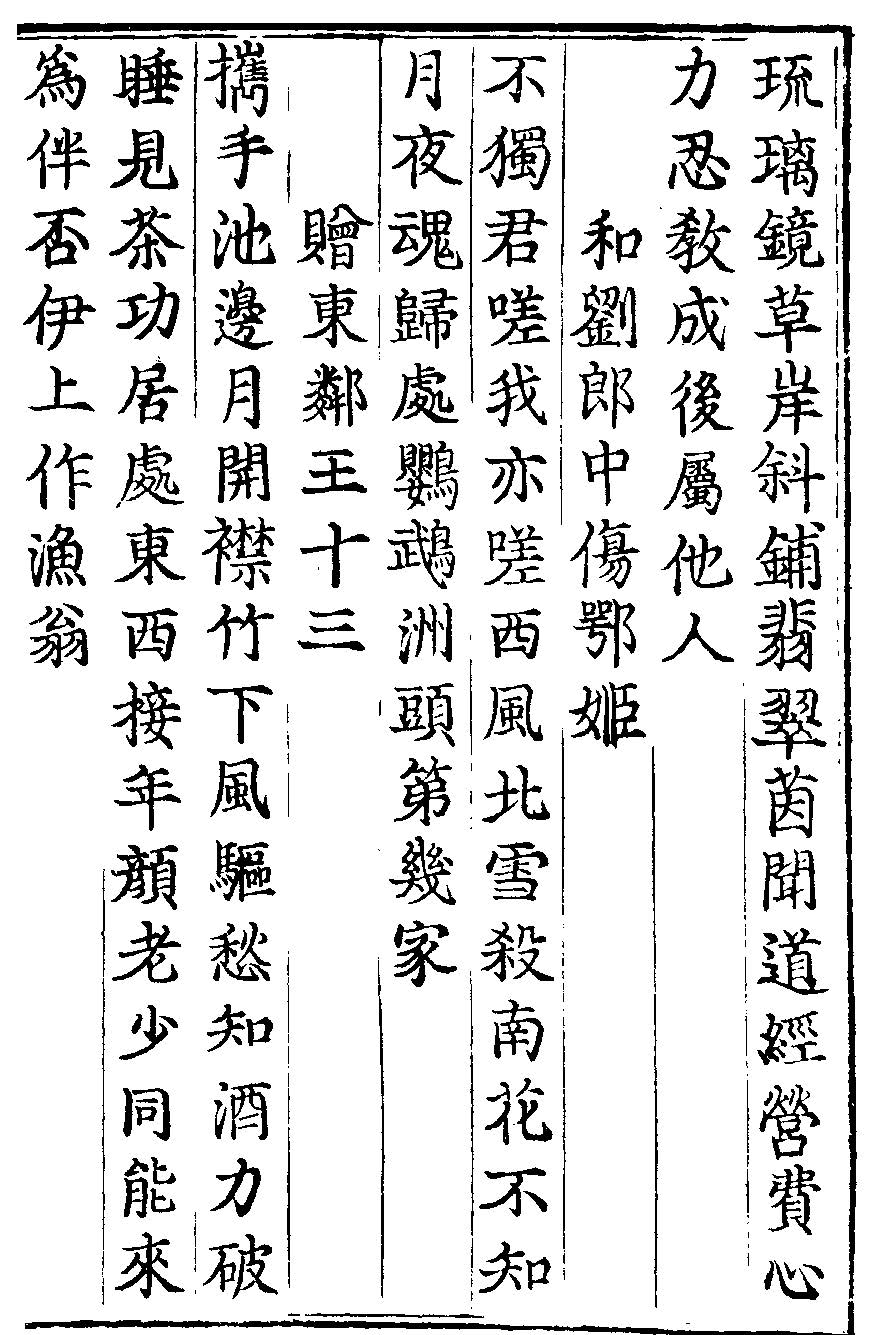 琉璃鏡草岸斜鋪翡翠茵聞道經營費心
力忍教成後屬他人
和劉郎中傷鄂姬
不獨君嗟我亦嗟西風北雪殺南花不知
月夜魂歸處鸚鵡洲頭第幾家
贈東鄰王十三
攜手池邊月開襟竹下風驅愁知酒力破
睡見茶功居處東西接年顏老少同能來
為伴否伊上作漁翁